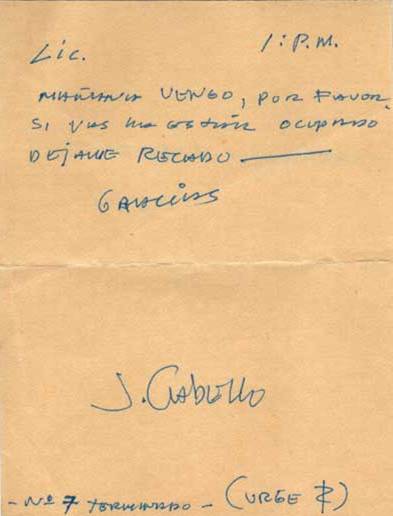 Lic. 1: P.M.
MAÑANA VENGO, POR FAVOR,
SI VAS HA ESTAR OCUPADO
DEJAME RECADO ———
GRACIAS
J. CABELLO
- Nº 7 TERMINADO - (URGE $)